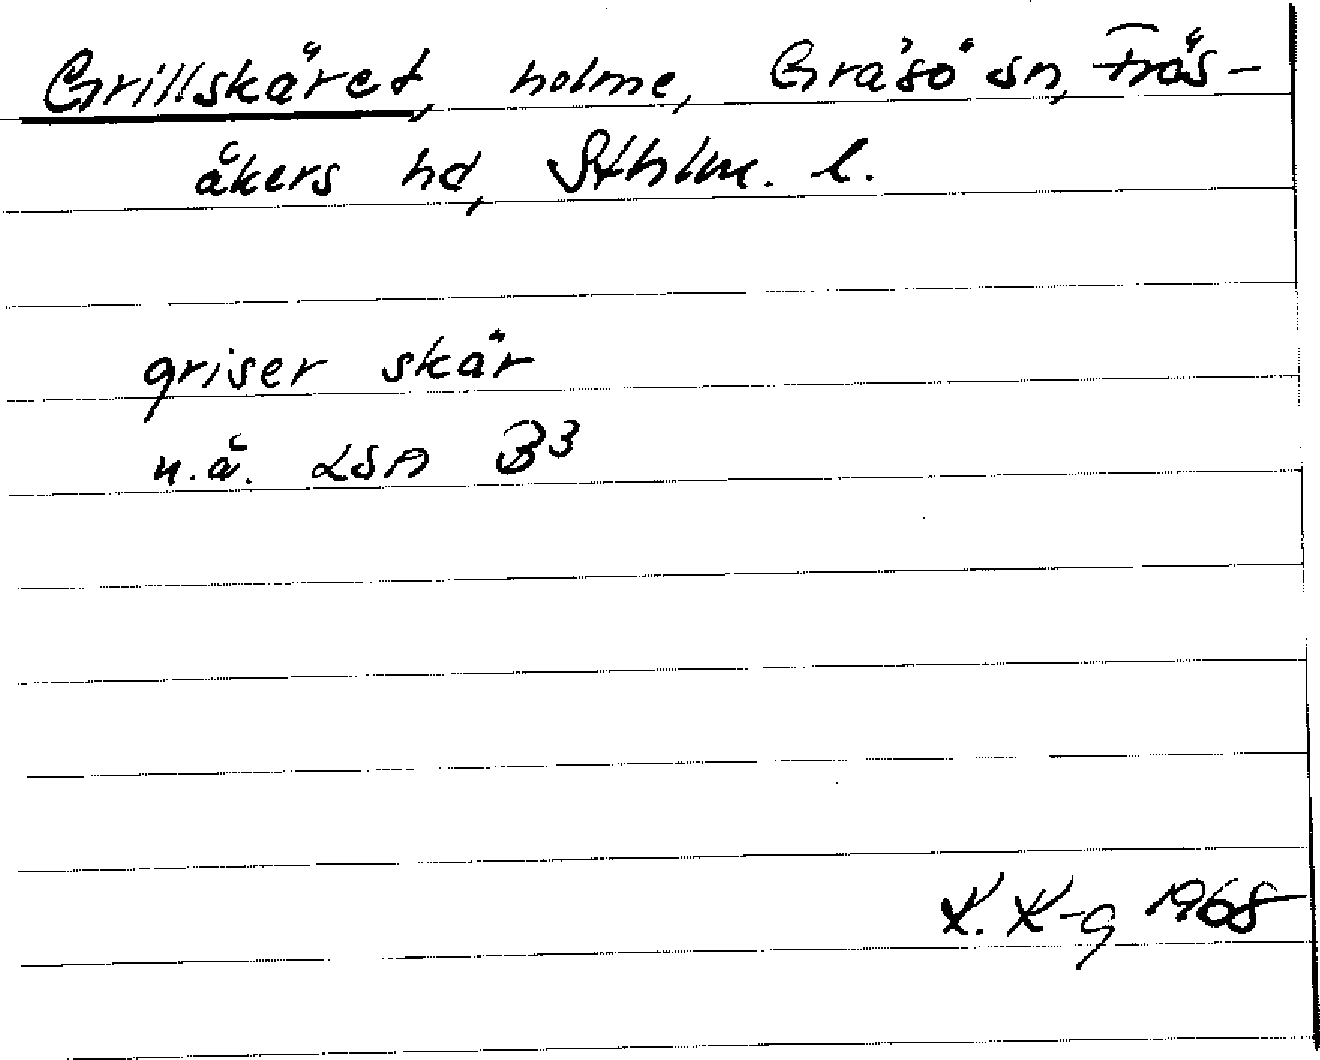 Grillskäret, holme, Gräsö sn, Frös-
åkers hd, Sthlm. l.
griser skär
n.ä. LSA B3
K. K-g 1968